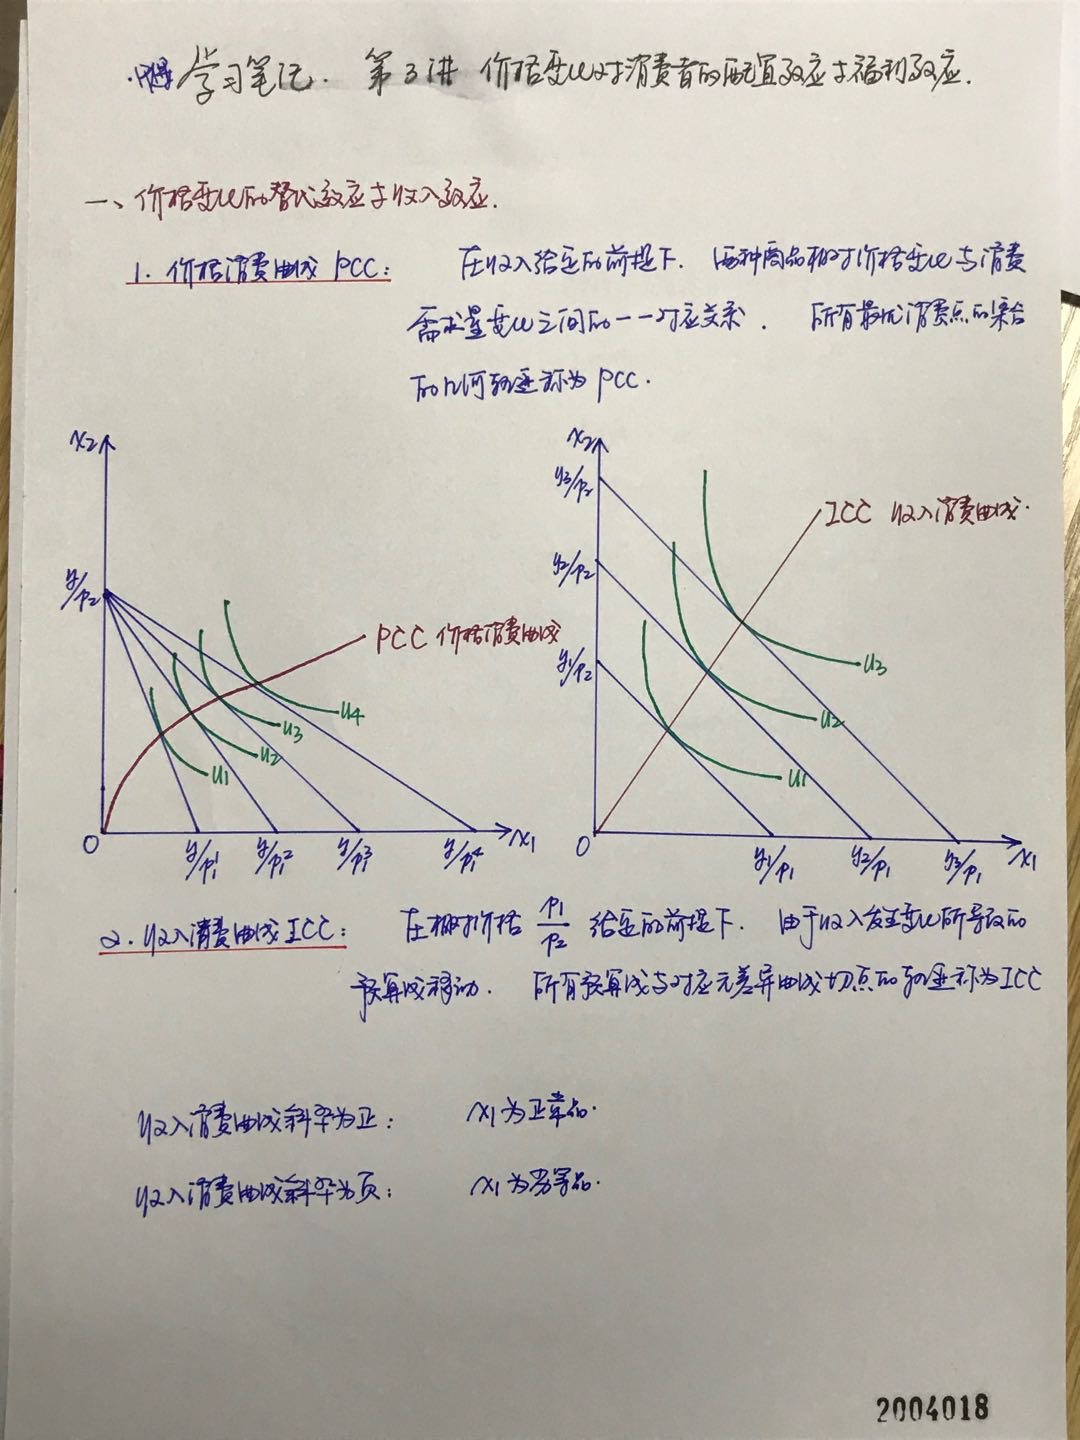 学习笔记. 第3讲 价格变化对消费者的配置效应与福利效应.
一、价格变化的替代效应与收入效应.
1. 价格消费曲线 PCC: 在收入给定的前提下. 两种商品相对价格变化与消费
需求量变化之间的一一对应关系. 所有最优消费点的集合
的几何轨迹称为 PCC.
x2
y/p2
PCC 价格消费曲线
u4
u3
u2
u1
O
y/p1^1 y/p1^2 y/p1^3 y/p1^4 x1
x2
y3/p2
ICC 收入消费曲线.
y2/p2
y1/p2
u3
u2
u1
O
y1/p1 y2/p1 y3/p1 x1
2. 收入消费曲线 ICC: 在相对价格 p1/p2 给定的前提下. 由于收入发生变化所导致的
预算线移动. 所有预算线与对应无差异曲线切点的轨迹称为ICC
收入消费曲线斜率为正: x1为正常品.
收入消费曲线斜率为负: x1为劣等品.
2004018